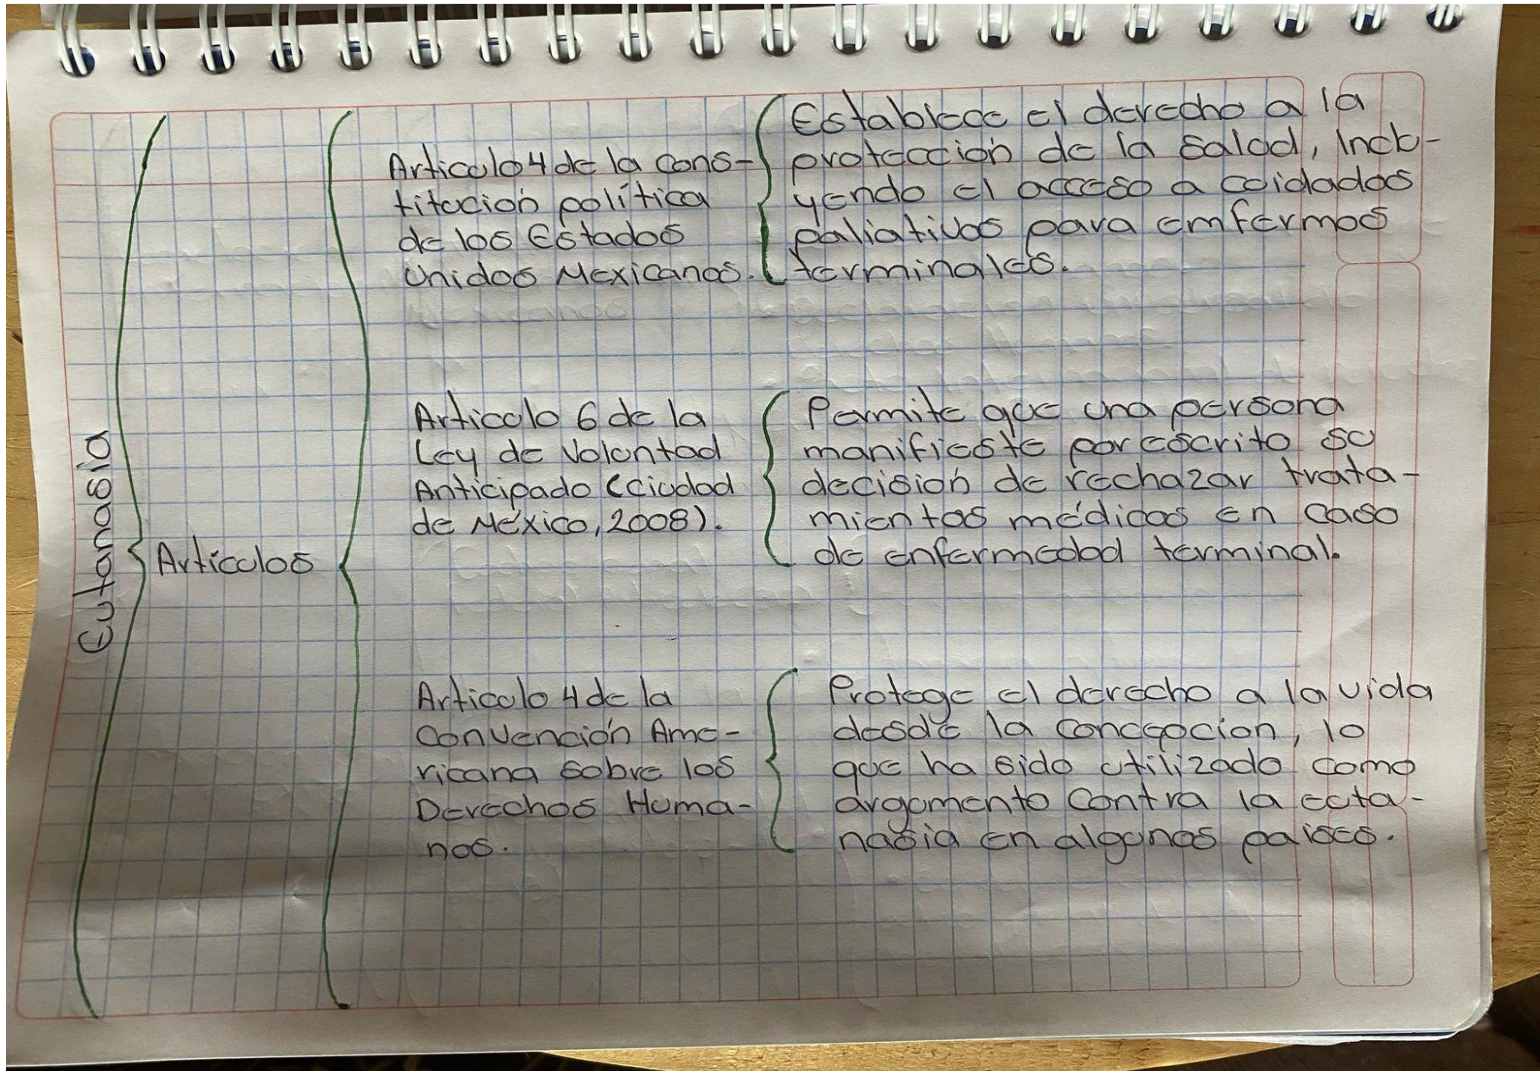 Eutanasia
Artículos
Articulo 4 de la cons-
titucion política
de los Estados
Unidos Mexicanos.
Establece el derecho a la
protección de la salud, inclu-
yendo el acceso a cuidados
paliativos para emfermos
terminales.
Articulo 6 de la
Ley de Voluntad
Anticipado (Ciudad
de México, 2008).
Permite que una persona
manifieste por escrito su
decisión de rechazar trata-
mientos médicos en caso
de enfermedad terminal.
Articulo 4 de la
Convención Ame-
ricana sobre los
Derechos Huma-
nos.
Protege el derecho a la vida
desde la concepcion, lo
que ha sido utilizado como
argumento contra la euta-
nasia en algunos paises.